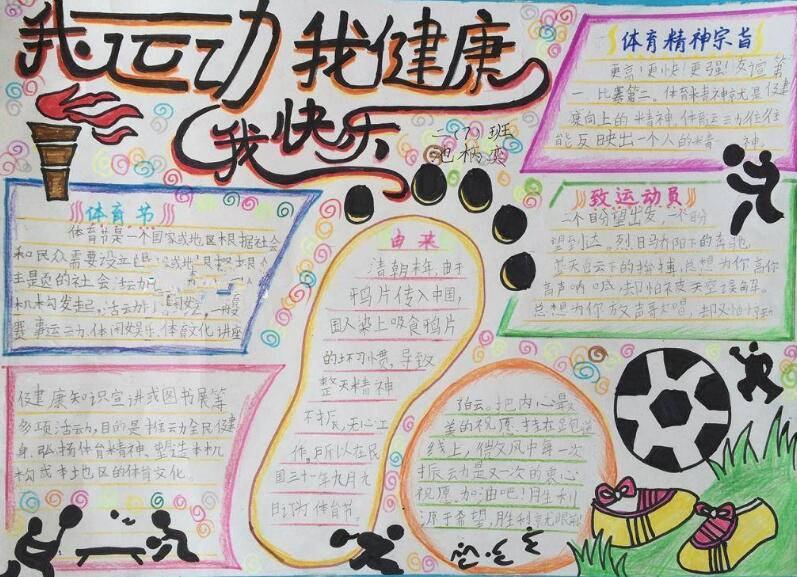 我运动 我健康
我快乐
二(7)班
体育精神宗旨
更高!更快!更强!友谊第
一,比赛第二。体育精神就是健
康向上的精神,体育运动往往
能反映出一个人的精 神。
体育节
体育节是一个国家或地区根据社会
和民众需要设立
主题的社会活动
机构发起,活动
赛事运动、休闲娱乐、体育文化讲座
健康知识宣讲或图书展等
多项活动,目的是推动全民健
身,弘扬体育精神、塑造本机
构或本地区的体育文化。
由来
清朝末年,由于
鸦片传入中国,
国人染上吸食鸦片
的坏习惯,导致
整天精神
不振,无心工
作。所以在民
国三十一年九月九
日订为体育节。
致运动员
一个盼望出发,一个盼
望到达。烈日骄阳下的奔驰,
蓝天白云下的拚搏,总想为你高你
高声呐喊,却只怕被天空误解。
总想为你放声歌唱,却又怕惊动
白云。把内心最
美的祝愿,挂在跑道
线上,微风中每一次
振动是又一次的衷心
祝愿。加油吧!胜利
源于希望,胜利